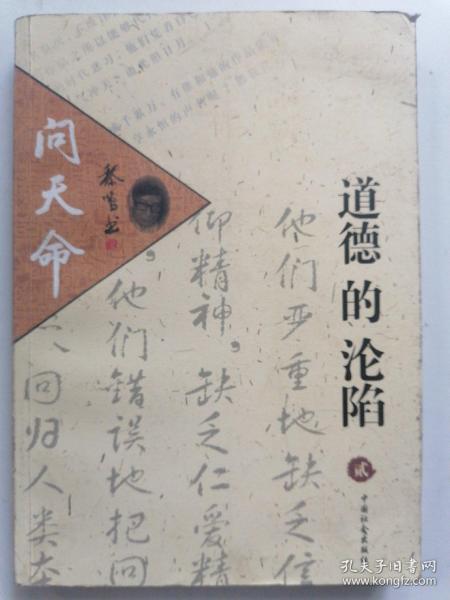 问天命
黎鸣书
道德的沦陷
贰
中国社会出版社
他们严重地缺乏信
仰精神，缺乏仁爱精
，他们错误地把回
回归人类本
孔夫子旧书网
www.kongfz.com